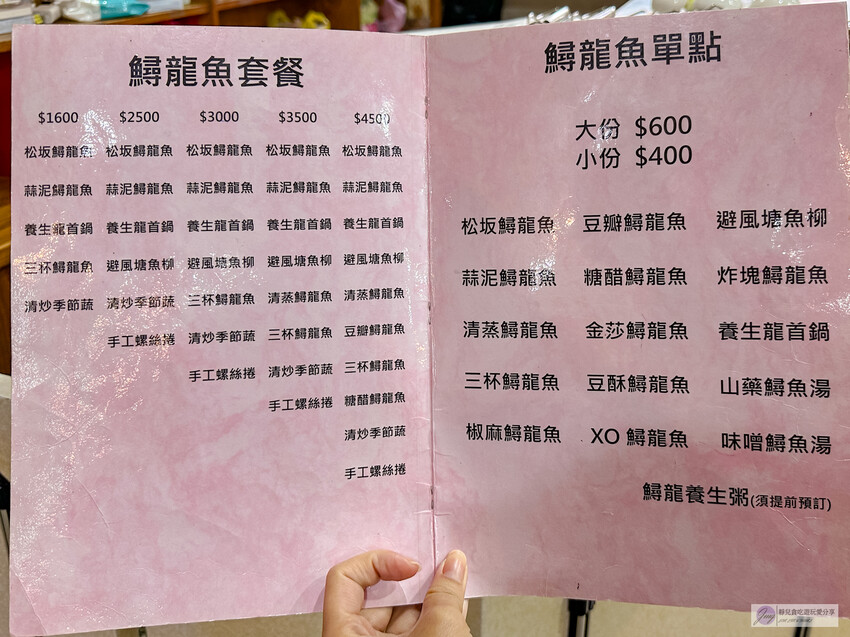 鱘龍魚套餐
$1600 $2500 $3000 $3500 $4500
松坂鱘龍魚 松坂鱘龍魚 松坂鱘龍魚 松坂鱘龍魚 松坂鱘龍魚
蒜泥鱘龍魚 蒜泥鱘龍魚 蒜泥鱘龍魚 蒜泥鱘龍魚 蒜泥鱘龍魚
養生龍首鍋 養生龍首鍋 養生龍首鍋 養生龍首鍋 養生龍首鍋
三杯鱘龍魚 避風塘魚柳 避風塘魚柳 避風塘魚柳 避風塘魚柳
清炒季節蔬 清炒季節蔬 三杯鱘龍魚 清蒸鱘龍魚 清蒸鱘龍魚
手工螺絲捲 清炒季節蔬 三杯鱘龍魚 豆瓣鱘龍魚
手工螺絲捲 清炒季節蔬 三杯鱘龍魚
手工螺絲捲 糖醋鱘龍魚
清炒季節蔬
手工螺絲捲
鱘龍魚單點
大份 $600
小份 $400
松坂鱘龍魚 豆瓣鱘龍魚 避風塘魚柳
蒜泥鱘龍魚 糖醋鱘龍魚 炸塊鱘龍魚
清蒸鱘龍魚 金莎鱘龍魚 養生龍首鍋
三杯鱘龍魚 豆酥鱘龍魚 山藥鱘魚湯
椒麻鱘龍魚 XO 鱘龍魚 味噌鱘魚湯
鱘龍養生粥(須提前預訂)
靜兒貪吃遊玩愛分享